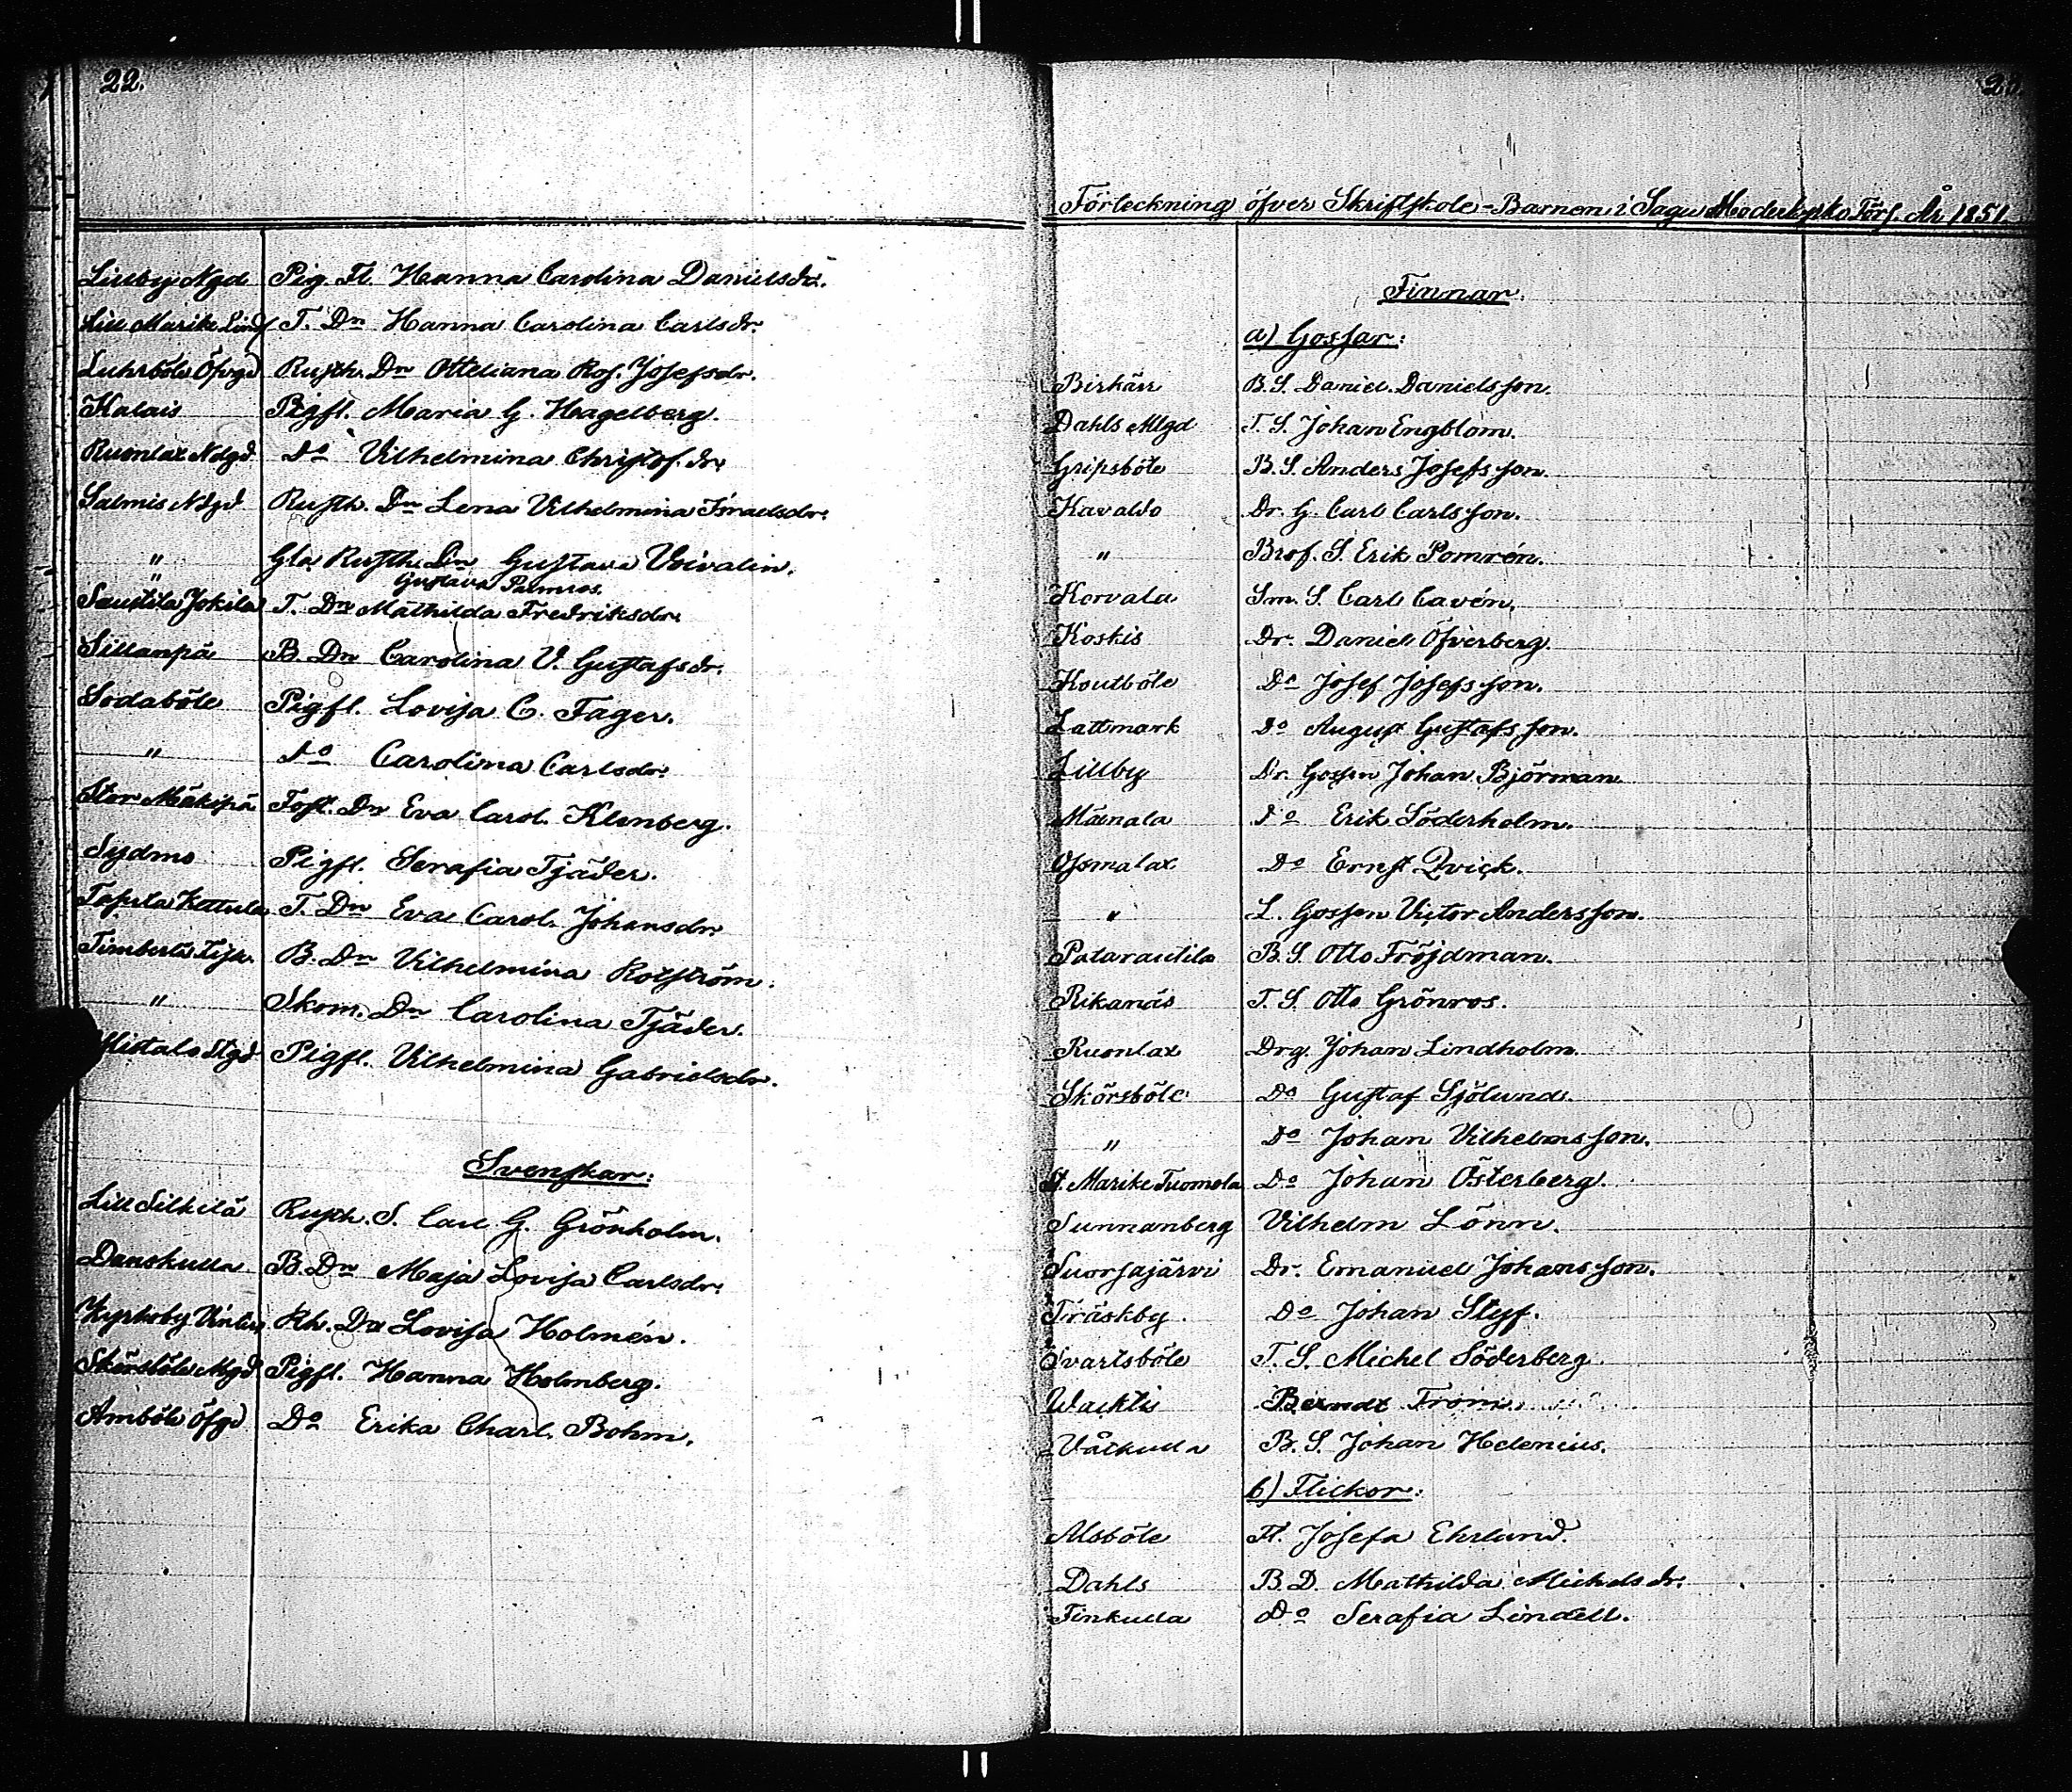 22.
Lillby Ngd Pig. Fl. Hanna Carolina Danielsdr.
Lill Marike Lindf T. Dn Hanna Carolina Carlsdr.
Luhrböle Öfvgd Rusth. Dn Otteliana Ros. Josefsdr.
Kalais Pigfl. Maria G. Hagelberg.
Ruonlax Ndgd Do Vilhelmina Christof.dr.
Salmis Ndgd Rusth. Dn Lena Vilhelmina Israelsdr.
" Gla Rusth. Dn Gustava Voivalin.
" Gustava Palmros.
Saustila Jokila T. Dn Mathilda Fredriksdr.
Sillanpä B. Dn Carolina V. Gustafsdr.
Sodaböle Pigfl. Lovisa C. Fager.
" Do Carolina Carlsdr.
Stor Mäkipä Tost. Dn Eva Carol. Klenberg.
Sydmo Pigfl. Serafia Tjäder.
Tapila Kettula T. Dn Eva Carol. Johansdr.
B. Dn Vilhelmina Rotström.
" Skom. Dn Carolina Tjäder.
Wistalo Stgd Pigfl. Vilhelmina Gabrielsdr.
Svenskar:
Lill Silkilä Rusth. S. Carl G. Grönholm.
Danskulla B. Dn Maja Lovisa Carlsdr.
Kyrkoby Rh. Dn Lovisa Holmén.
Skärsböle Mgd Pigfl. Hanna Holmberg.
Amböle Öfgd Do Erika Charl. Bohm.
Förteckning öfver Skriftskole-Barnen i Sagu Moderkyrko Förs. År 1851
Finnar.
a) Gossar:
Birkärr B. S. Daniel Danielsson.
Dahls Mlgd T. S. Johan Engblom.
Gripsböle B. S. Anders Josefsson.
Kavaldo Dr. G. Carl Carlsson.
" Brof. S. Erik Pomrén.
Korvala Sm. S. Carl Cavén.
Koskis Dr. Daniel Öfverberg.
Koutböle Do Josef Josefsson.
Lattmark Do August Gustafsson.
Lillby Dr. Gossen Johan Björman.
Mäenala Do Erik Söderholm.
Ossmalax Do Ernst Qvick.
" L. Gossen Victor Andersson.
Patarautila B. S. Otto Fröjdman.
Rikanäs T. S. Otto Grönros.
Ruonlax Drg. Johan Lindholm.
Skörsböle Do Gustaf Sjölund.
" Do Johan Vilhelmsson.
St. Marike Tuomola Do Johan Österberg.
Sunnanberg Vilhelm Lönn.
Suorsajärvi Dr. Emanuel Johansson.
Träskby. Do Johan Styf.
Svartsböle T. S. Michel Söderberg.
Wacktis Berndt Trom.
Vålkulla B. S. Johan Helenius.
b) Flickor:
Alsböle Fl. Josefa Ehrlund.
Dahls B. D. Mathilda Michelsdr.
Finkulla Do Serafia Lindell.